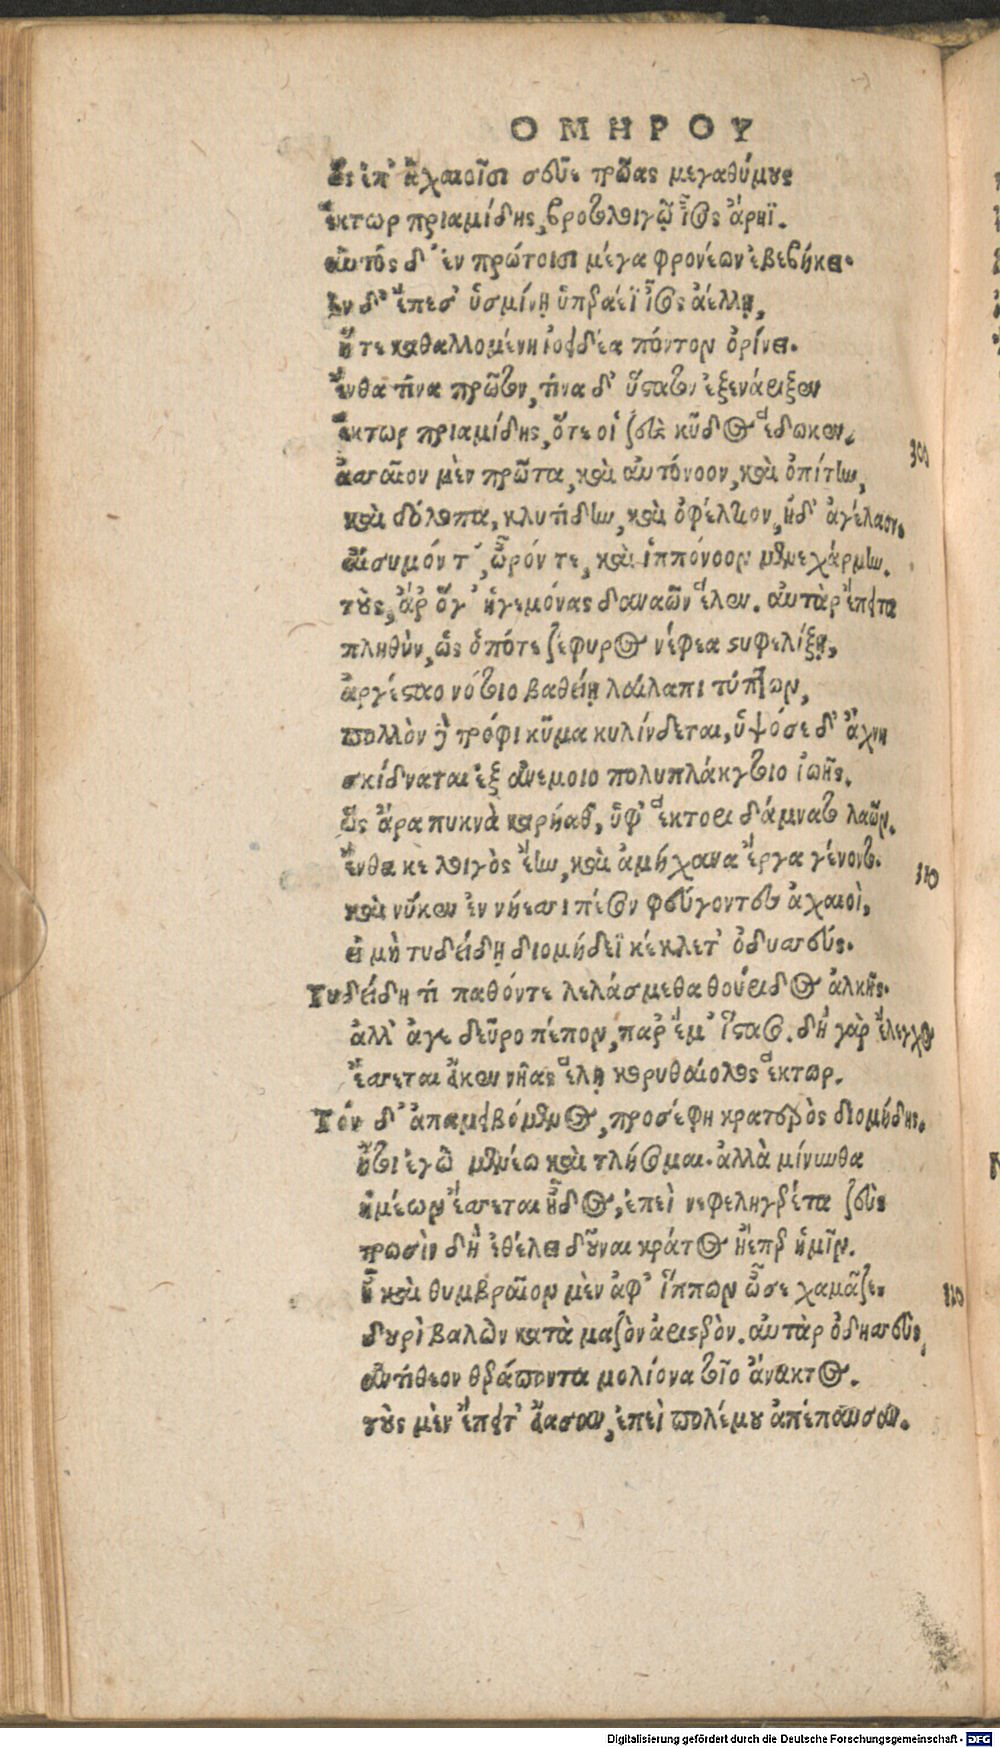 ΟΜΗΡΟΥ
ὣς ἐπ' ἀχαιοῖσι σεῦε τρῶας μεγαθύμους
ἕκτωρ πριαμίδης, βροτολοιγῷ ἶσος ἄρηϊ.
αὐτὸς δ' ἐν πρώτοισι μέγα φρονέων ἐβεβήκει.
ἐν δ' ἔπεσ' ὑσμίνῃ ὑπεραέϊ ἶσος ἀέλλῃ,
ἥ τε καθαλλομένη ἰοειδέα πόντον ὀρίνει.
ἔνθα τίνα πρῶτον, τίνα δ' ὕστατον ἐξενάριξεν
ἕκτωρ πριαμίδης, ὅτε οἱ ζεὺς κῦδος ἔδωκεν.
300
ἀσσαῖον μὲν πρῶτα, καὶ αὐτόνοον, καὶ ὀπίτην,
καὶ δόλοπα, κλυτίδην, καὶ ὀφέλτιον, ἠδ' ἀγέλαον,
αἴσυμόν τ', ὦρόν τε, καὶ ἱππόνοον μενεχάρμην.
τοὺς, ἄρ' ὅγ' ἡγεμόνας δαναῶν ἕλεν. αὐτὰρ ἔπειτα
πληθὺν, ὡς ὁπότε ζεφυρος νέφεα στυφελίξῃ,
ἀργέσταο νότοιο βαθείῃ λαίλαπι τύπτων,
πολλὸν δὲ τρόφι κῦμα κυλίνδεται, ὑψόσε δ' ἄχνη
σκίδναται ἐξ ἀνεμοιο πολυπλάκγτοιο ἰωῆς.
ὣς ἄρα πυκνὰ καρήαθ, ὑφ' ἕκτορι δάμνατο λαῶν.
ἔνθα κε λοιγὸς ἔην, καὶ ἀμήχανα ἔργα γένοντο.
310
καὶ νύκεν ἐν νήεσσι πέσον φεύγοντες ἀχαιοὶ,
εἰ μὴ τυδείδῃ διομήδεϊ κέκλετ' ὀδυσσεύς.
Τυδείδη τί παθόντε λελάσμεθα θούριδος ἀλκῆς.
ἀλλ' ἄγε δεῦρο πέπον, παρ' ἔμ' ἵστασο. δὴ γὰρ ἔλεγχος
ἔσσεται ἄκεν νῆας ἕλῃ κορυθαίολος ἕκτωρ.
Τὸν δ' ἀπαμειβόμενος, προσέφη κρατερὸς διομήδης.
ἤτοι ἐγὼ μενέω καὶ τλήσομαι. ἀλλὰ μίνυνθα
ἡμέων ἔσσεται ἦδος, ἐπεὶ νεφεληγερέτα ζεὺς
τρωσὶν δὴ ἐθέλει δοῦναι κράτος ἠέπερ ἡμῖν.
ἦ καὶ θυμβραῖον μὲν ἀφ' ἵππων ὦσε χαμᾶζε.
320
δουρὶ βαλὼν κατὰ μαζὸν ἀριστερὸν. αὐτὰρ ὀδησσεὺς,
ἀντίθεον θεράποντα μολίονα τοῖο ἄνακτος.
τοὺς μὲν ἔπειτ' ἔασαν, ἐπεὶ πολέμου ἀπέπαυσαν.
Digitalisierung gefördert durch die Deutsche Forschungsgemeinschaft - DFG